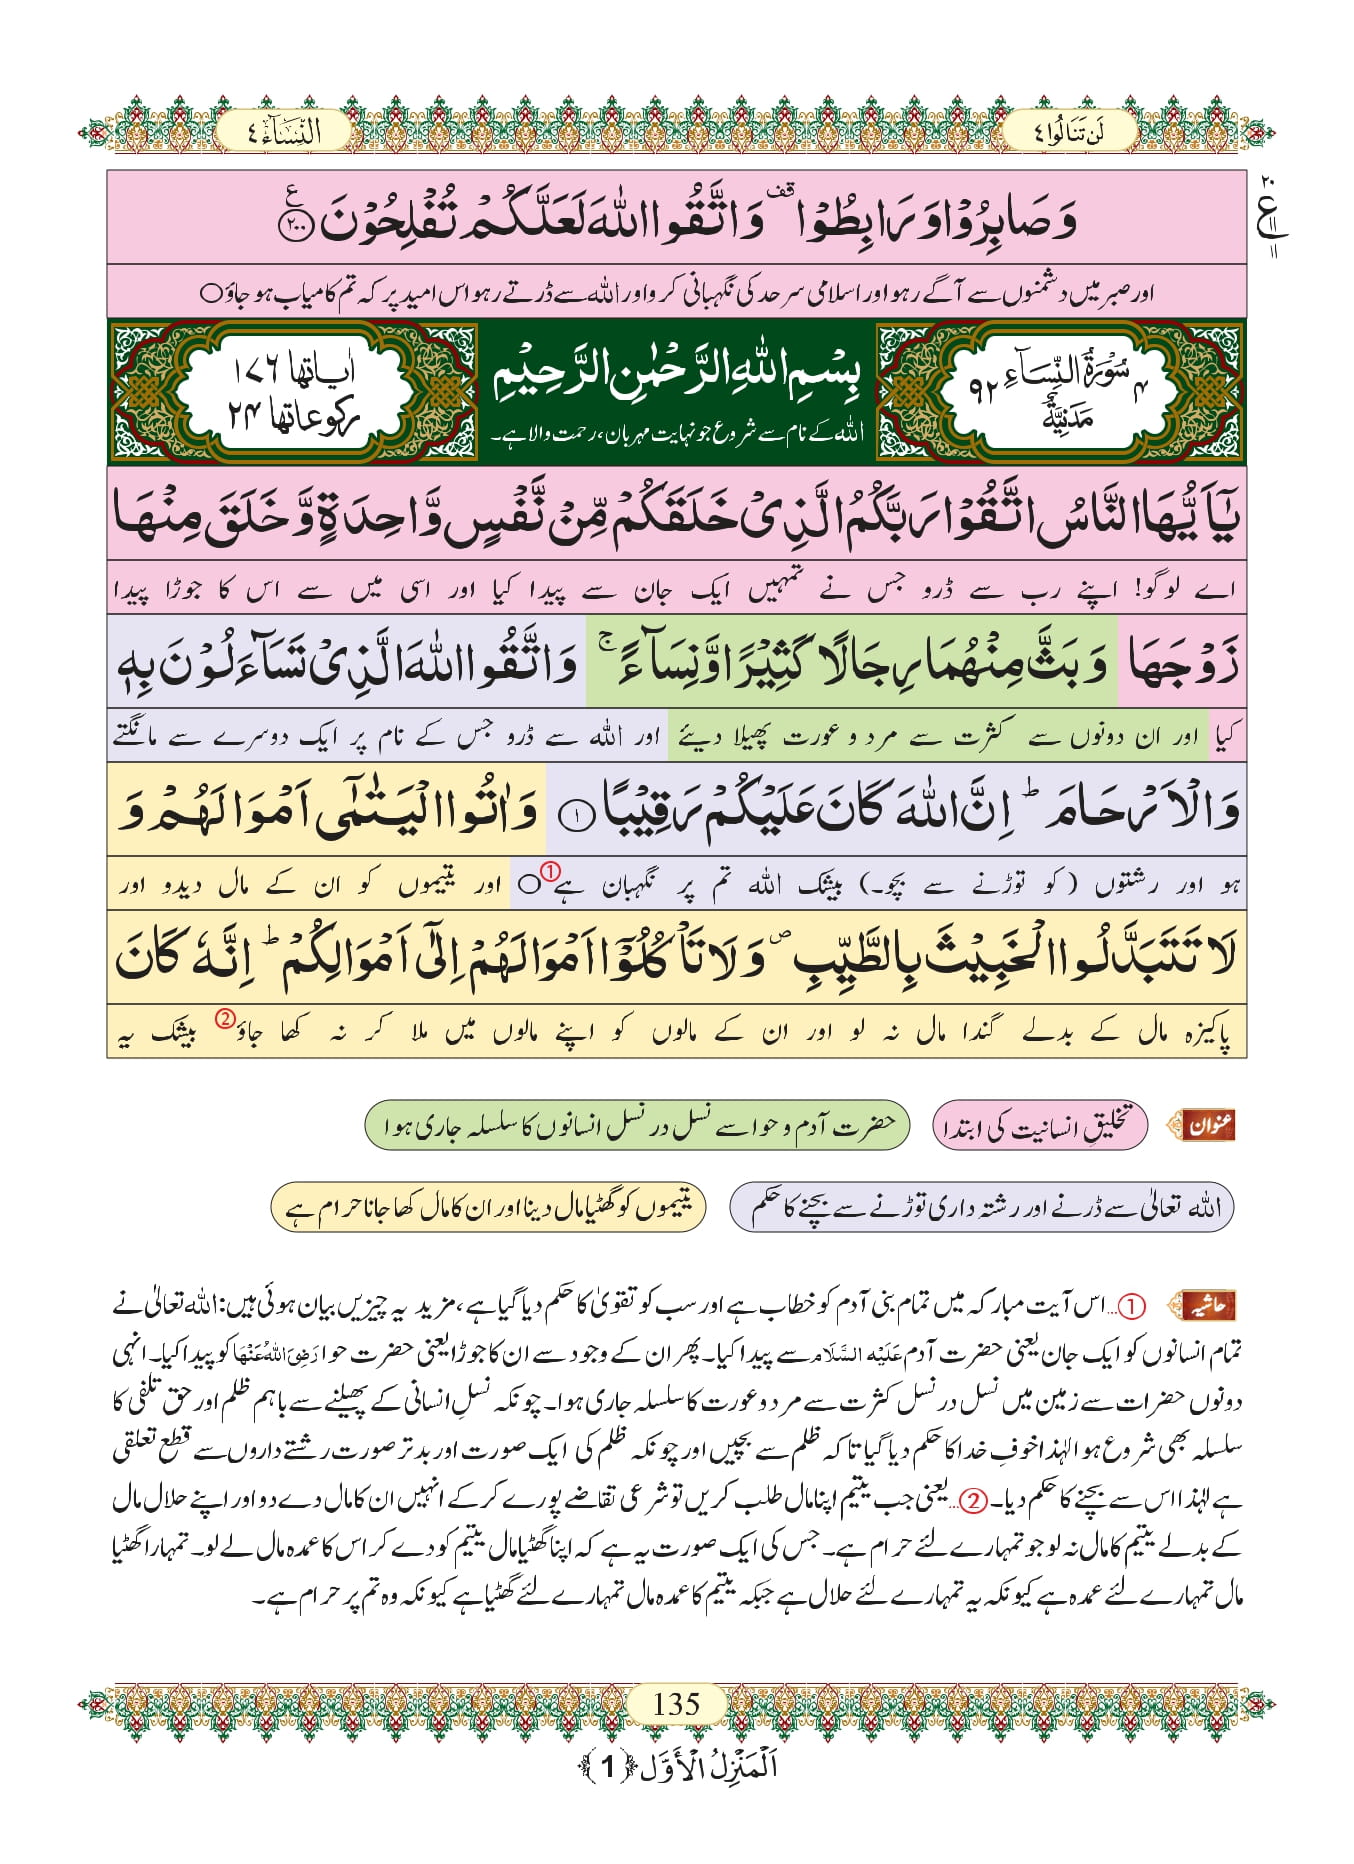 لَنْ تَنَالُوا ٤
النِّسَآء ٤
٢٠
ع
١١
١١
وَصَابِرُوْا وَرَابِطُوْا ۫ وَاتَّقُوا اللّٰهَ لَعَلَّكُمْ تُفْلِحُوْنَ ﴿۲۰۰﴾ ع
اور صبر میں دشمنوں سے آگے رہو اور اسلامی سرحد کی نگہبانی کرو اور اللہ سے ڈرتے رہو اس امید پر کہ تم کامیاب ہو جاؤ ○
۴ سُوْرَةُ النِّسَآءِ ۹۲
مَدَنِيَّةٌ
بِسْمِ اللّٰهِ الرَّحْمٰنِ الرَّحِيْمِ
اللہ کے نام سے شروع جو نہایت مہربان، رحمت والا ہے۔
اٰیاتها ۱۷۶
رکوعاتها ۲۴
يٰۤاَيُّهَا النَّاسُ اتَّقُوْا رَبَّكُمُ الَّذِىْ خَلَقَكُمْ مِّنْ نَّفْسٍ وَّاحِدَةٍ وَّخَلَقَ مِنْهَا
اے لوگو! اپنے رب سے ڈرو جس نے تمہیں ایک جان سے پیدا کیا اور اسی میں سے اس کا جوڑا پیدا
زَوْجَهَا وَبَثَّ مِنْهُمَا رِجَالًا كَثِيْرًا وَّنِسَآءً ۚ وَاتَّقُوا اللّٰهَ الَّذِىْ تَسَآءَلُوْنَ بِهٖ
کیا اور ان دونوں سے کثرت سے مرد و عورت پھیلا دیئے اور اللہ سے ڈرو جس کے نام پر ایک دوسرے سے مانگتے
وَالْاَرْحَامَ ؕ اِنَّ اللّٰهَ كَانَ عَلَيْكُمْ رَقِيْبًا ﴿۱﴾ وَاٰتُوا الْيَتٰمٰۤى اَمْوَالَهُمْ وَ
ہو اور رشتوں (کو توڑنے سے بچو۔) بیشک اللہ تم پر نگہبان ہے ① ○ اور یتیموں کو ان کے مال دیدو اور
لَا تَتَبَدَّلُوا الْخَبِيْثَ بِالطَّيِّبِ ۪ وَلَا تَاْكُلُوْۤا اَمْوَالَهُمْ اِلٰۤى اَمْوَالِكُمْ ؕ اِنَّهٗ كَانَ
پاکیزہ مال کے بدلے گندا مال نہ لو اور ان کے مالوں کو اپنے مالوں میں ملا کر نہ کھا جاؤ ② بیشک یہ
عنوان
تخلیقِ انسانیت کی ابتدا
حضرت آدم و حوا سے نسل در نسل انسانوں کا سلسلہ جاری ہوا
اللہ تعالیٰ سے ڈرنے اور رشتہ داری توڑنے سے بچنے کا حکم
یتیموں کو گھٹیا مال دینا اور ان کا مال کھا جانا حرام ہے
حاشیہ ①... اس آیت مبارکہ میں تمام بنی آدم کو خطاب ہے اور سب کو تقویٰ کا حکم دیا گیا ہے، مزید یہ چیزیں بیان ہوئی ہیں: اللہ تعالیٰ نے
تمام انسانوں کو ایک جان یعنی حضرت آدم عَلَیْہِ السَّلَام سے پیدا کیا۔ پھر ان کے وجود سے ان کا جوڑا یعنی حضرت حوا رَضِیَ اللہُ عَنْہَا کو پیدا کیا۔ انہی
دونوں حضرات سے زمین میں نسل در نسل کثرت سے مرد و عورت کا سلسلہ جاری ہوا۔ چونکہ نسلِ انسانی کے پھیلنے سے باہم ظلم اور حق تلفی کا
سلسلہ بھی شروع ہوا لہٰذا خوفِ خدا کا حکم دیا گیا تاکہ ظلم سے بچیں اور چونکہ ظلم کی ایک صورت اور بدتر صورت رشتے داروں سے قطع تعلقی
ہے لہٰذا اس سے بچنے کا حکم دیا۔ ②... یعنی جب یتیم اپنا مال طلب کریں تو شرعی تقاضے پورے کر کے انہیں ان کا مال دے دو اور اپنے حلال مال
کے بدلے یتیم کا مال نہ لو جو تمہارے لئے حرام ہے۔ جس کی ایک صورت یہ ہے کہ اپنا گھٹیا مال یتیم کو دے کر اس کا عمدہ مال لے لو۔ تمہارا گھٹیا
مال تمہارے لئے عمدہ ہے کیونکہ یہ تمہارے لئے حلال ہے جبکہ یتیم کا عمدہ مال تمہارے لئے گھٹیا ہے کیونکہ وہ تم پر حرام ہے۔
135
اَلْمَنْزِلُ الْأَوَّل ﴿1﴾